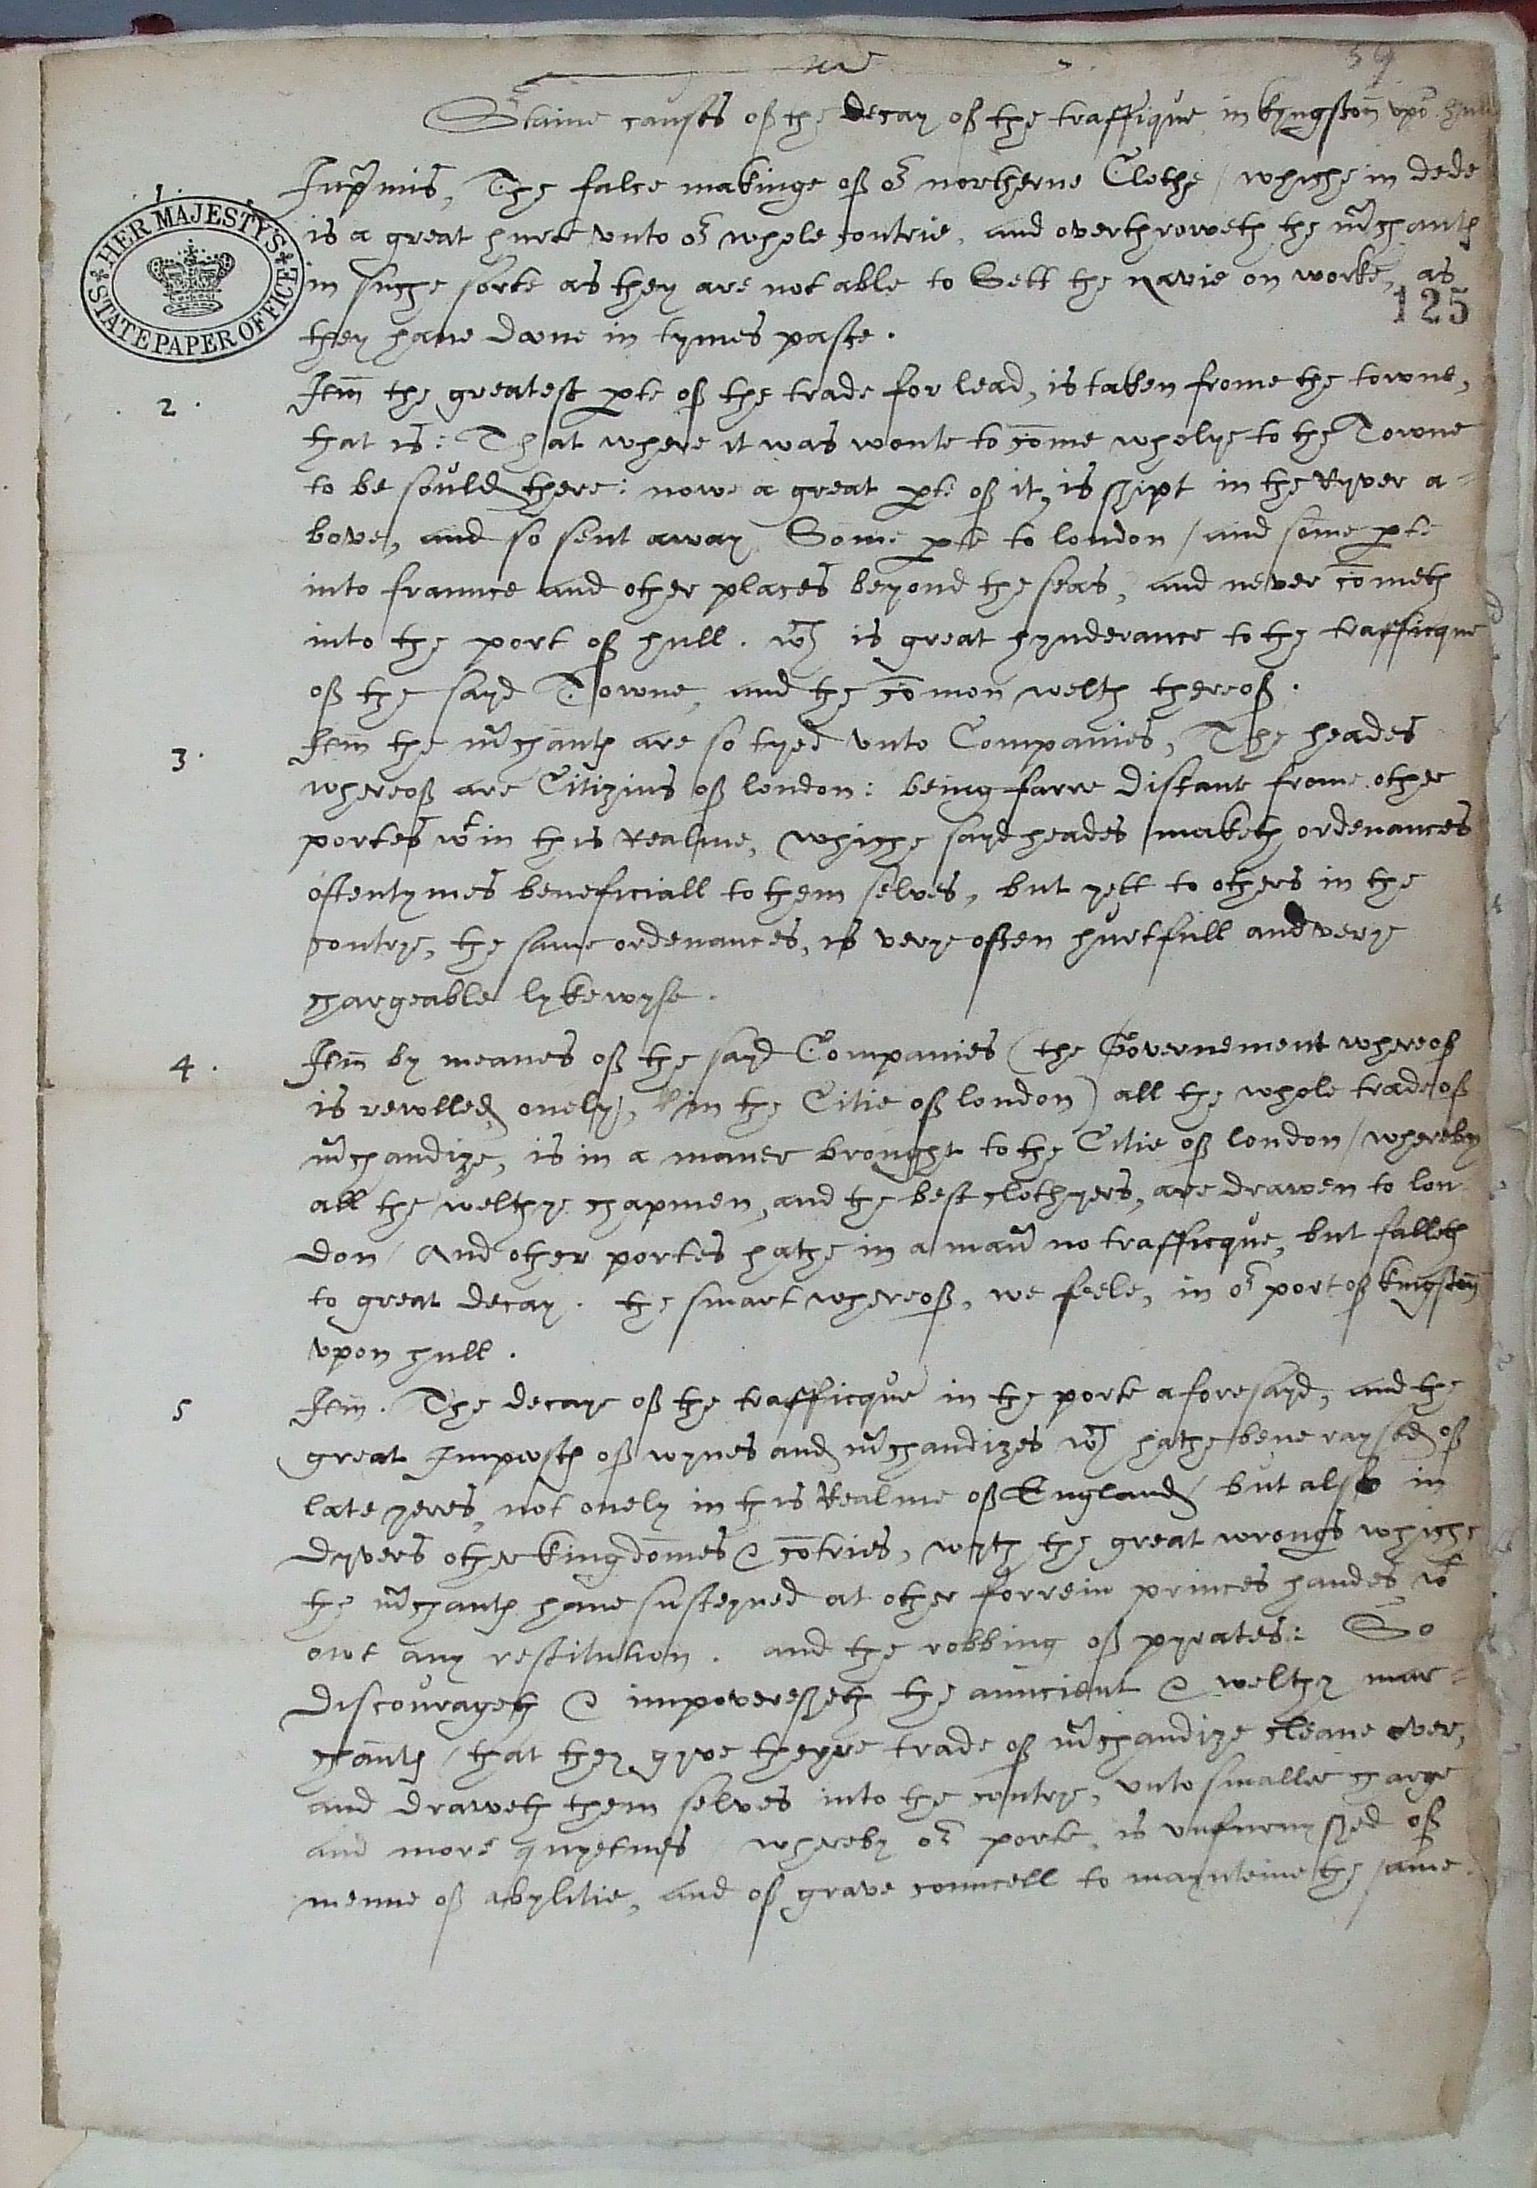 59
Staine causes of the decay of the traffique in kyngston vpō hull
HER MAJESTY'S STATE PAPER OFFICE
125
1.
Inp̄mis, The false makinge of or northerne Clothe / whiche in dede
is a great hurte vnto or whole contrie, and overthroweth the m̄chantes
in suche sorte as they are not able to Sett the navie on worke, as
they have done in tymes paste.
2. Itm̄ the greatest pte of the trade for lead, is taken frome the towne,
that is: That where it was wonte to cōme wholye to the Towne
to be soulde there: nowe a great pte of it, is shipt in the Ryver a-
bove, and so sent away Some pte to london / and some pte
into fraunce and other places beyond the seas, and never cōmeth
into the port of hull. wch is great hynderance to the trafficque
of the sayd Towne, and the cōmon welth thereof.
3. Itm̄ the m̄chantes are so tyed vnto Companies, The heades
whereof are Citizins of london: being farre distant frome other
portes wtin this Realme, whiche sayd heades maketh ordenances
oftentymes beneficiall to them selves, but yett to others in the
contrye, the same ordenances, is verye often hurtfull and verye
chargeable lykewyse.
4. Itm̄ by meanes of the sayd Companies (the Governement whereof
is rewlled onely, in the Citie of london) all the whole trade of
m̄chandize, is in a maner brought to the Citie of london / whereby
all the welthye chapmen, and the best clothyers, are drawen to lon
don / And other portes hathe in a man̄ no trafficque, but falleth
to great decay. the smart whereof, we feele, in or port of kingston
vpon hull.
5 Itm̄. The decaye of the trafficque in the porte aforesayd, and the
great Impostes of wynes and m̄chandizes wch hathe bene raysed of
late yeres, not onely in this Realme of England / but also in
dyvers other kingdōmes & cōtries, wyth the great wrongs whiche
the m̄chantes have susteyned at other forrein princes handes, wt
owt any restitution. and the robbing of pyrates: So
discourageth & impoveresheth the auncient & welthy mar-
chantes / that they gyve theyre trade of m̄chandize cleane over,
and draweth them selves into the contrye, vnto smaller charge
and more quyetnes whereby or porte, is vnfurnyshed of
menne of abylitie, and of grave councell to maynteine the same.